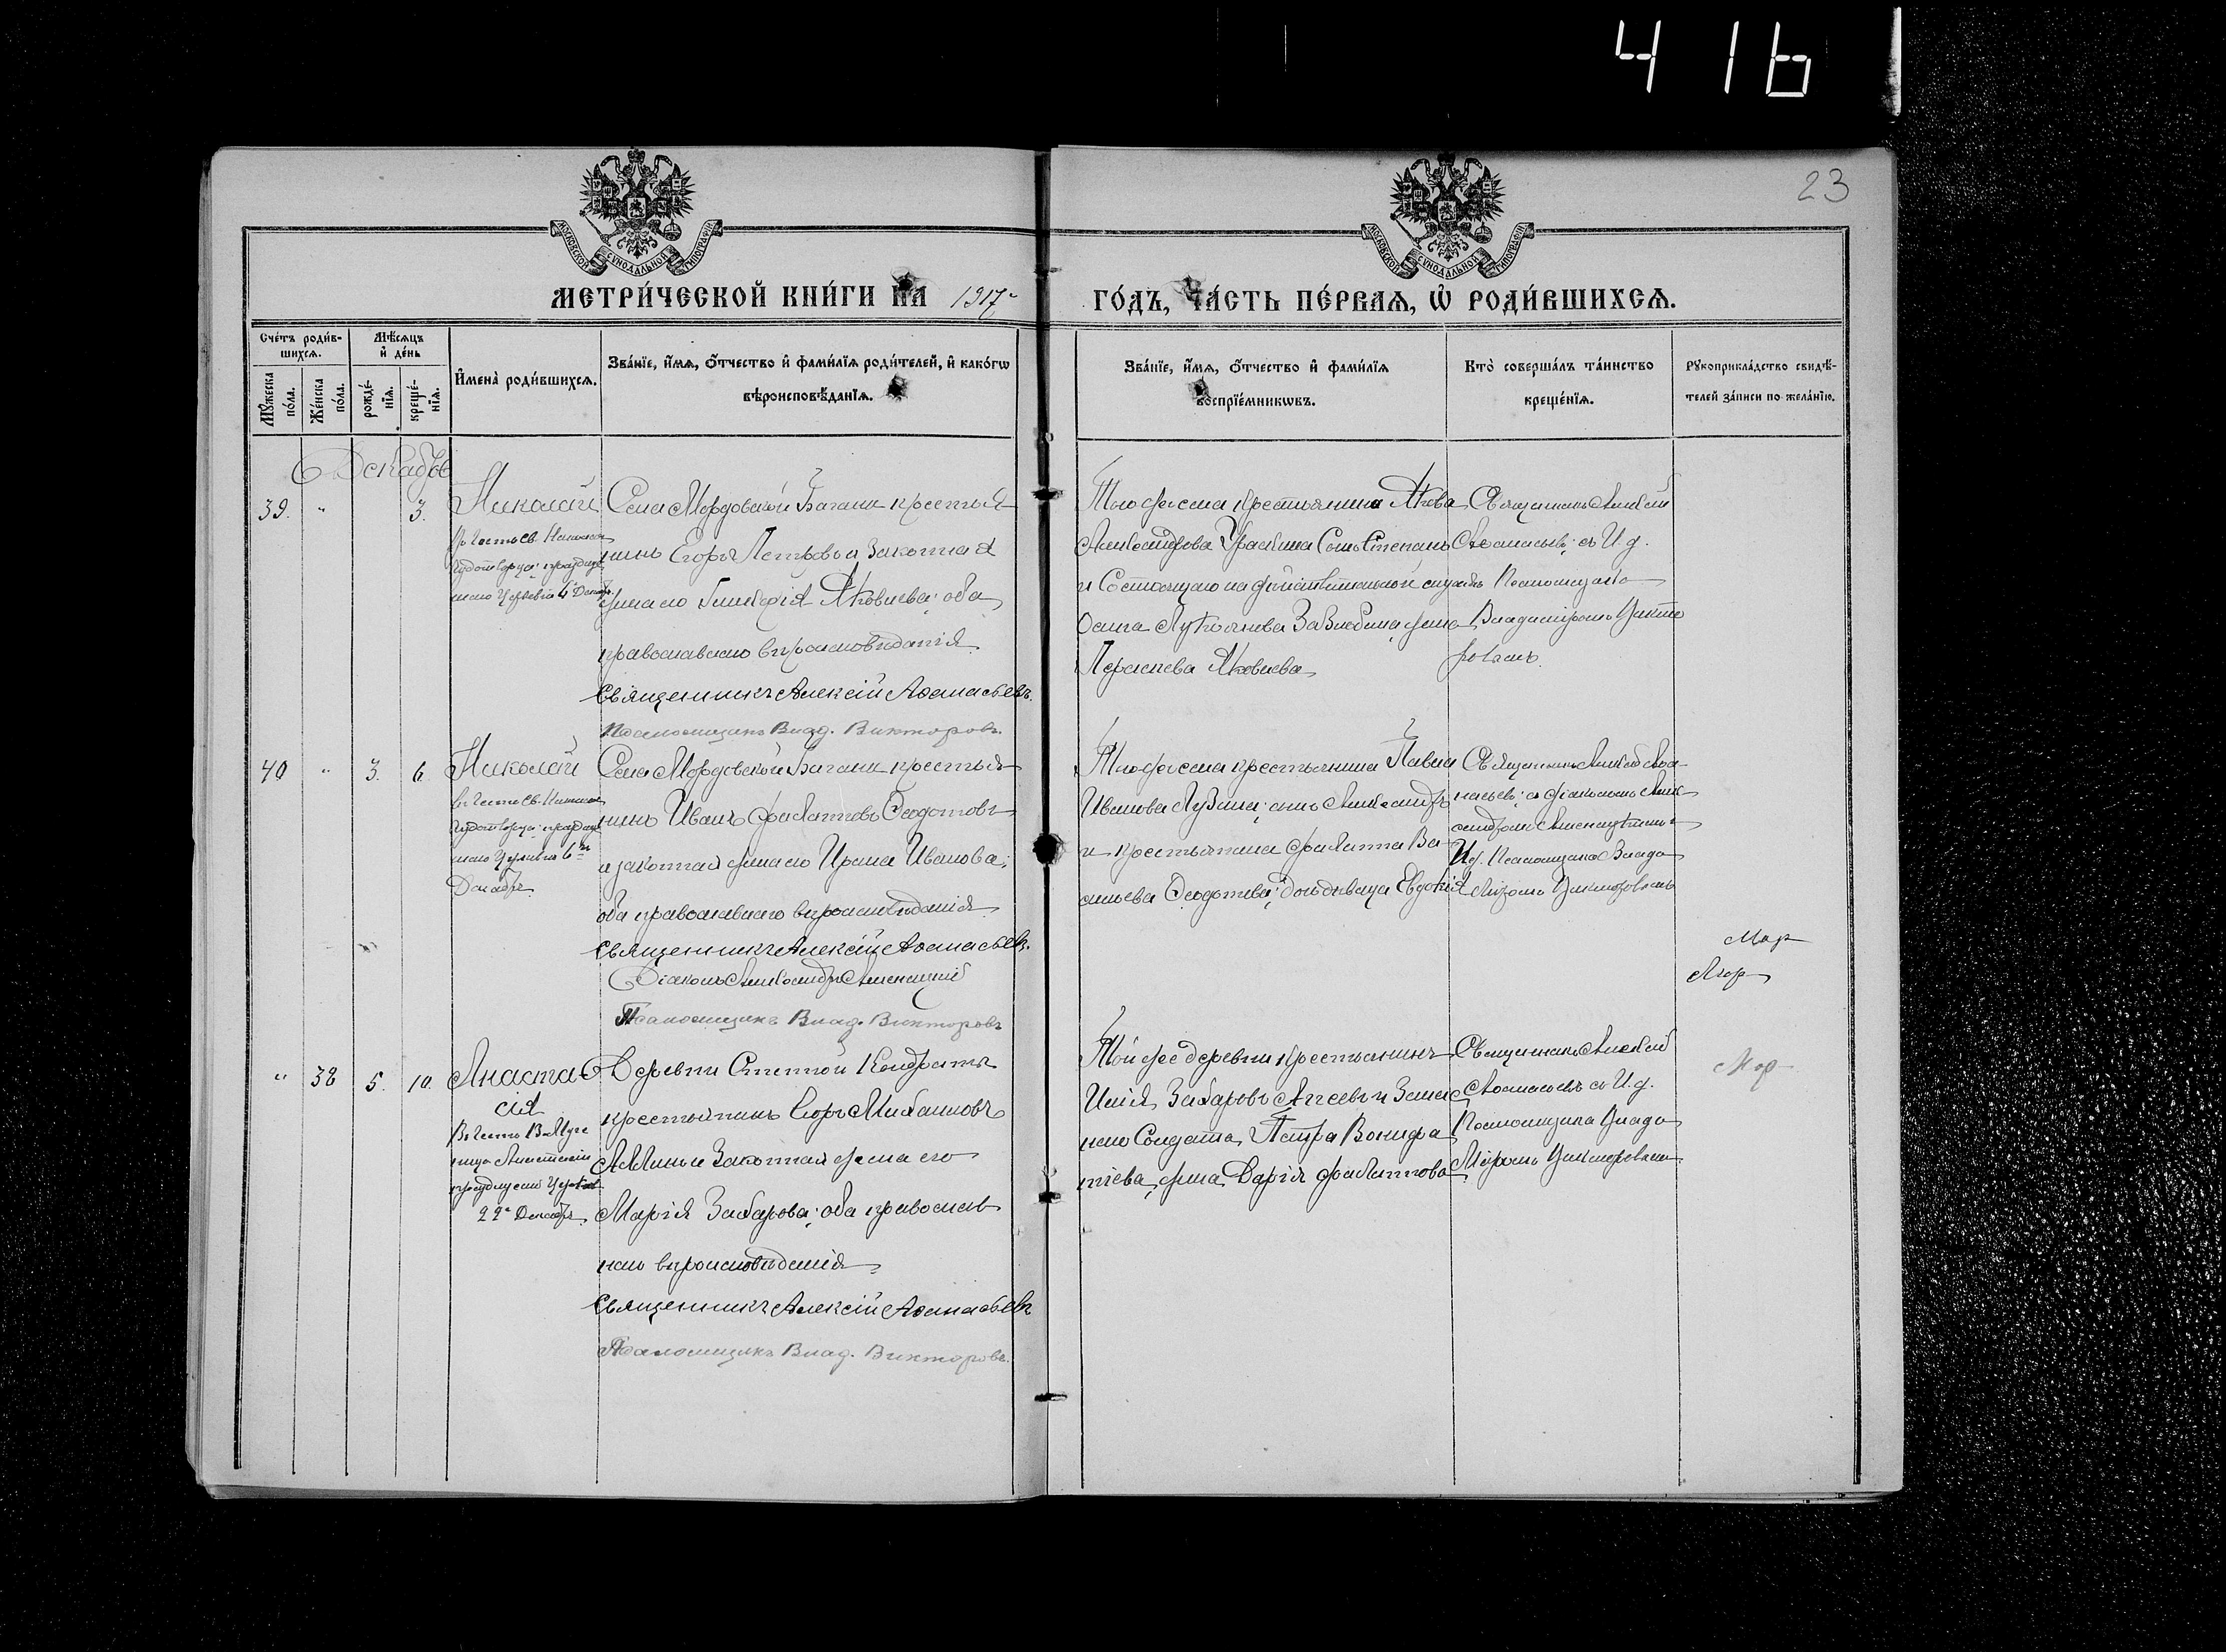 416
23
МОСКОВСКОЙ СѴНОДАЛЬНОЙ ТИПОГРАФІИ
МОСКОВСКОЙ СѴНОДАЛЬНОЙ ТИПОГРАФІИ
МЕТРИ́ЧЕСКОЙ КНИ́ГИ НА 1917 г
ГО́ДЪ, ЧА́СТЬ ПЕ́РВАѦ, Ѡ҆ РОДИ́ВШИХСѦ.
Сче́тъ роди́в-
шихсѧ.
Мѣ́сѧцъ
и҆ де́нь
Мꙋ́жеска
по́ла.
Же́нска
по́ла.
рожде́-
нїѧ.
креще́-
нїѧ.
И҆мена̀ роди́вшихсѧ.
Зва́нїе, и҆́мѧ, ѻ҆́тчество и҆ фами́лїѧ роди́телей, и҆ како́гѡ
вѣроисповѣ́данїѧ.
Зва́нїе, и҆́мѧ, ѻ҆́тчество и҆ фами́лїѧ
воспрїе́мникѡвъ.
Кто̀ соверша́лъ та́инство
креще́нїѧ.
Рꙋкоприкла́дство свидѣ́-
телей за́писи по жела́нїю.
Декабрь
39. " 3.
Николай
въ честь св. Николая
Чудотворца; праздну
6 Декабр.
Села Мордовской Багана крестья
нинъ Егоръ Петровъ и законная
жена его Яковлева; оба
православнаго вѣроисповѣданія
Священникъ Алексій Аѳанасьевъ.
Псаломщикъ Влад. Викторовъ.
Того же села крестьянина Якова
Александрова сынъ Степанъ
и состоящаго на дѣйствительной службѣ
Осипа Лукоянова жена
Яковлева
Священникъ Алексій
Аѳанасьевъ; съ И. д.
Псаломщика
Владиміромъ Викто
ровымъ.
40 " 3. 6.
Николай
въ честь св. Николая
Чудотворца; праздну
6го
Декабря
Села Мордовской Багана крестья
нинъ Иванъ Филипповъ Ѳедотовъ
и законная жена его Ирина Иванова;
оба православнаго вѣроисповѣданія
Священникъ Алексій Аѳанасьевъ.
Діаконъ Александръ
Псаломщикъ Влад. Викторовъ
Того же села крестьянина Павла
Иванова Лузина; сынъ Александръ
и крестьянина Филиппа Ва
сильева Ѳедотова; дочь дѣвица Евдокія
Священникъ Алексій Аѳа
насьевъ; съ діакономъ Алек
сандромъ
И. д. Псаломщика Влади
міромъ Викторовымъ
Мор
Мор
" 38 5. 10.
Анаста
сія
Въ честь В. Муче
ницы Анастасіи
22го Декабря
Деревни Степной Кондраты
крестьянинъ Егоръ Михаиловъ
и законная жена его
Марія Захарова; оба православ
наго вѣроисповѣданія
Священникъ Алексій Аѳанасьевъ
Псаломщикъ Влад. Викторовъ.
Той же деревни крестьянинъ
Илія Захаровъ и запас
наго солдата Петра Вонифа
тіева, жена Дарія Филиппова
Священникъ Алексій
Аѳанасьевъ съ И. д.
Псаломщика Влади
міромъ Викторовымъ
Мор